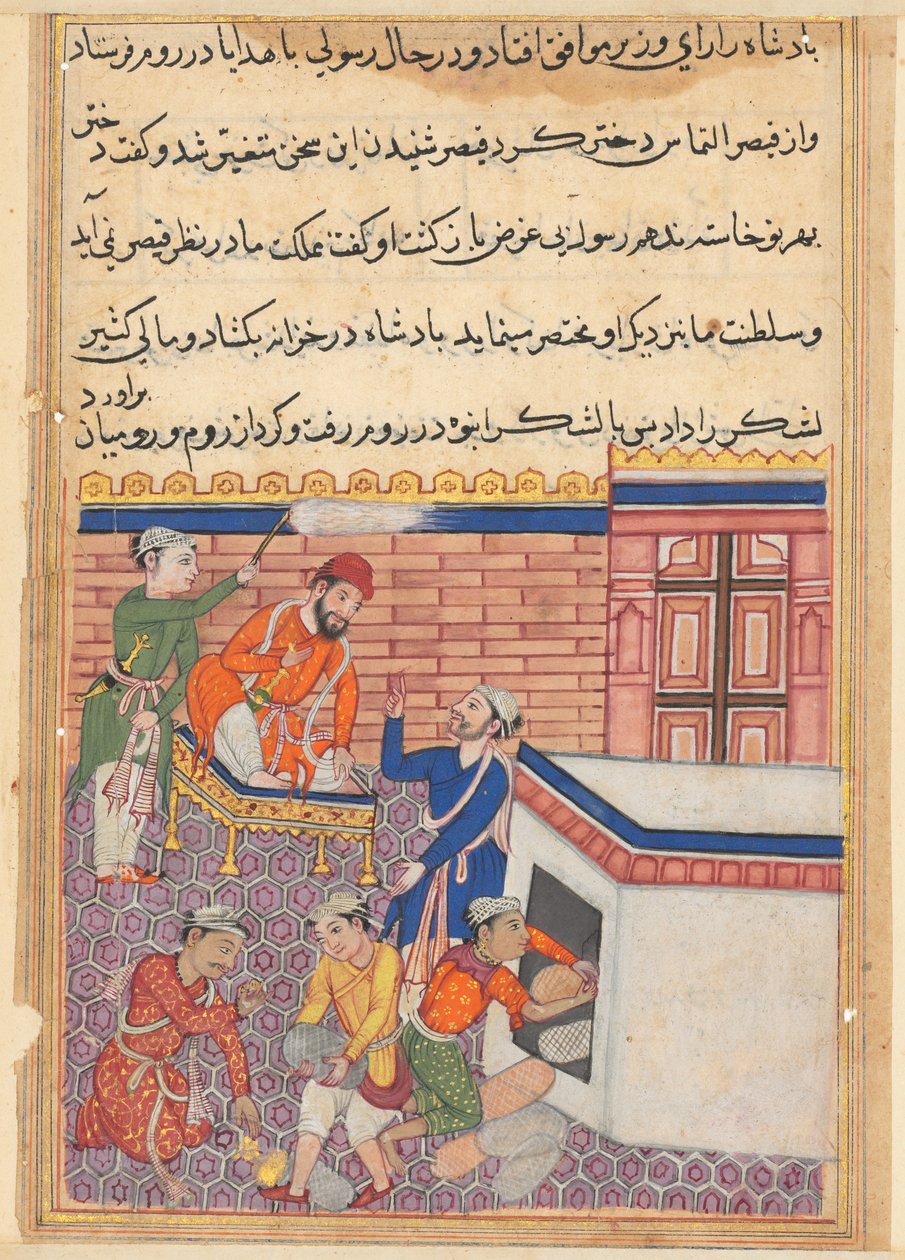 بادشاه را راي وزير موافق افتاد و در حال رسولي با هدايا در روم فرستاد
و از قيصر التماس دختر كرد قيصر شنيدن اين سخن متغيّر شد و كفت دختر
بهر تو خاسته ندهم رسول بي غرض باز كشت او كفت مملكت ما در نظر قيصر نمي آيد
و سلطنت ما بنزديك او مختصر مينمايد بادشاه در خزانه بكشاد و مالي كثير
لشكر را داد بس با لشكر انبوه در روم رفت و كرد از روم و روميان براورد